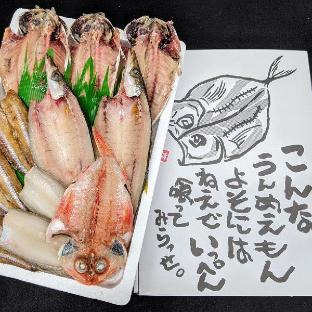 こんな
うんめえもん
よそには
ねえでいっぺん
喰て
みらっせ。